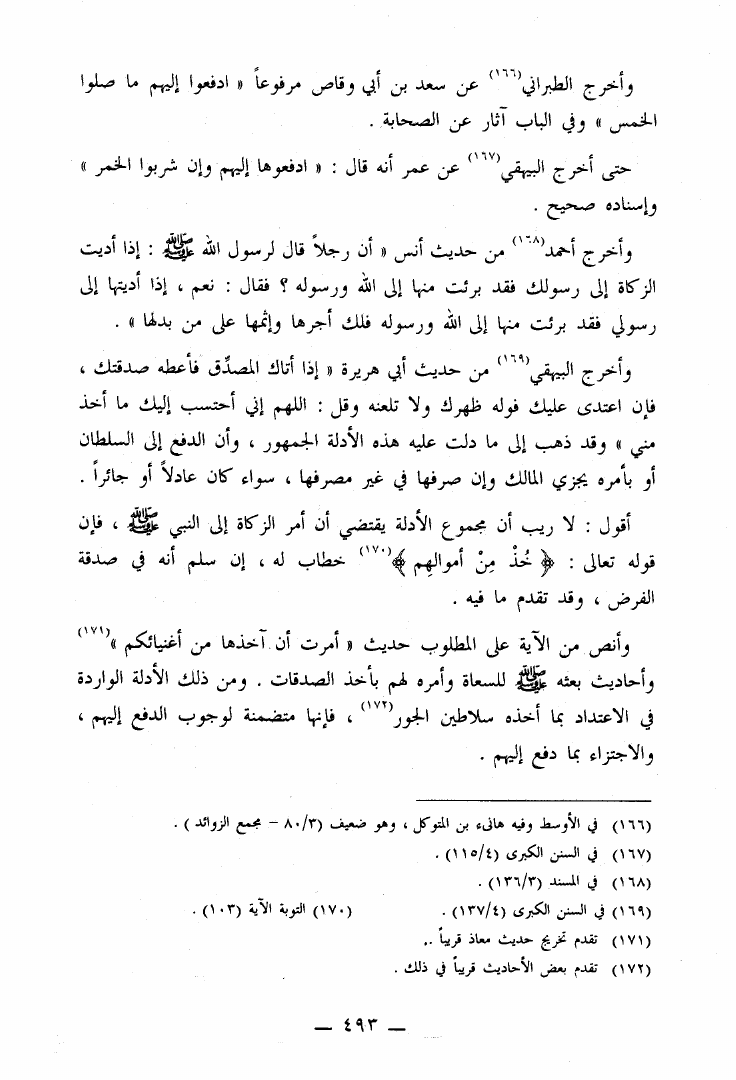 وأخرج الطبراني(١٦٦) عن سعد بن أبي وقاص مرفوعاً « ادفعوا إليهم ما صلوا
الخمس » وفي الباب آثار عن الصحابة .
حتى أخرج البيهقي(١٦٧) عن عمر أنه قال : « ادفعوها إليهم وإن شربوا الخمر »
وإسناده صحيح .
وأخرج أحمد(١٦٨) من حديث أنس « أن رجلاً قال لرسول الله ﷺ : إذا أديت
الزكاة إلى رسولك فقد برئت منها إلى الله ورسوله ؟ فقال : نعم ، إذا أديتها إلى
رسولي فقد برئت منها إلى الله ورسوله فلك أجرها وإثمها على من بدلها » .
وأخرج البيهقي(١٦٩) من حديث أبي هريرة « إذا أتاك المصدِّق فأعطه صدقتك ،
فإن اعتدى عليك فوله ظهرك ولا تلعنه وقل : اللهم إني أحتسب إليك ما أخذ
مني » وقد ذهب إلى ما دلت عليه هذه الأدلة الجمهور ، وأن الدفع إلى السلطان
أو بأمره يجزي المالك وإن صرفها في غير مصرفها ، سواء كان عادلاً أو جائراً .
أقول : لا ريب أن مجموع الأدلة يقتضي أن أمر الزكاة إلى النبي ﷺ ، فإن
قوله تعالى : ﴿ خُذْ مِنْ أموالِهِم ﴾(١٧٠) خطاب له ، إن سلم أنه في صدقة
الفرض ، وقد تقدم ما فيه .
وأنص من الآية على المطلوب حديث « أمرت أن آخذها من أغنيائكم »(١٧١)
وأحاديث بعثه ﷺ للسعاة وأمره لهم بأخذ الصدقات . ومن ذلك الأدلة الواردة
في الاعتداد بما أخذه سلاطين الجور(١٧٢) ، فإنها متضمنة لوجوب الدفع إليهم ،
والاجتزاء بما دفع إليهم .
(١٦٦) في الأوسط وفيه هانىء بن المتوكل ، وهو ضعيف (٨٠/٣ – مجمع الزوائد ) .
(١٦٧) في السنن الكبرى (١١٥/٤) .
(١٦٨) في المسند (١٣٦/٣) .
(١٦٩) في السنن الكبرى (١٣٧/٤) . (١٧٠) التوبة الآية (١٠٣) .
(١٧١) تقدم تخريج حديث معاذ قريباً .
(١٧٢) تقدم بعض الأحاديث قريباً في ذلك .
— ٤٩٣ —